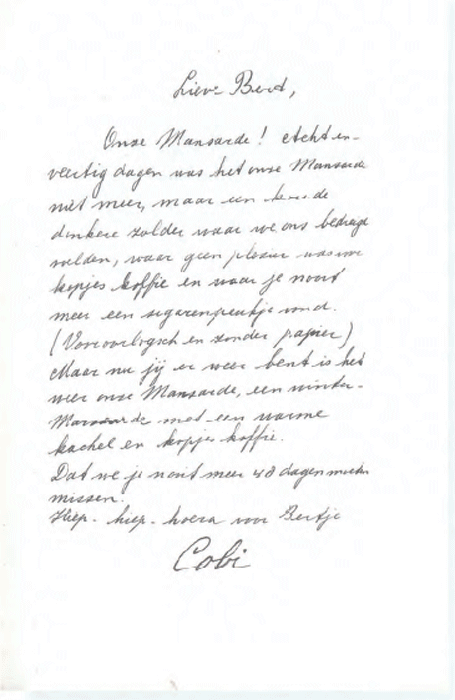 Lieve Bert,
Onze Mansarde! Acht en-
veertig dagen was het onze Mansarde
niet meer, maar een de
donkere zolder waar we ons
velden, waar geen plezier was
kopjes koffie en waar je nooit
meer een sigarenpeukje vond.
(Vooroorlogsch en zonder papier)
Maar nu jij er weer bent is het
weer onze Mansarde, een winter-
Mansarde met een warme
kachel en kopjes koffie.
Dat we je nooit meer 48 dagen moeten
missen.
Hiep - hiep - hoera voor Bertje
Cobi